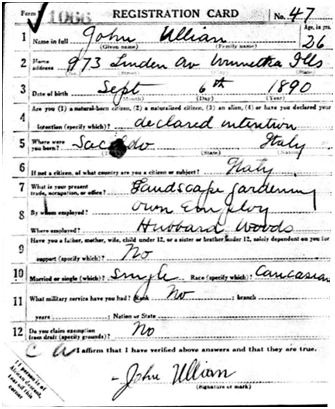 Form 1 1066 REGISTRATION CARD No. 47
1 Name in full John Ullian Age, in yrs. 26
(Given name) (Family name)
2 Home address 973 Linden Av Winnetka Ills
(No.) (Street) (City) (State)
3 Date of birth Sept 6th 1890
(Month) (Day) (Year)
Are you (1) a natural-born citizen, (2) a naturalized citizen, (3) an alien, (4) or have you declared your
4 intention (specify which)? declared intention
5 Where were you born? Italy
(Town) (State) (Nation)
6 If not a citizen, of what country are you a citizen or subject? Italy
7 What is your present trade, occupation, or office? Landscape gardening
8 By whom employed? own Employ
Where employed? Hubbard Woods
9 Have you a father, mother, wife, child under 12, or a sister or brother under 12, solely dependent on you for
support (specify which)? No
10 Married or single (which)? Single Race (specify which)? Caucasian
11 What military service have you had? Rank No ; branch
years ; Nation or State
12 Do you claim exemption from draft (specify grounds)? No
I affirm that I have verified above answers and that they are true.
John Ullian
(Signature or mark)
If person is of African descent, tear off this corner